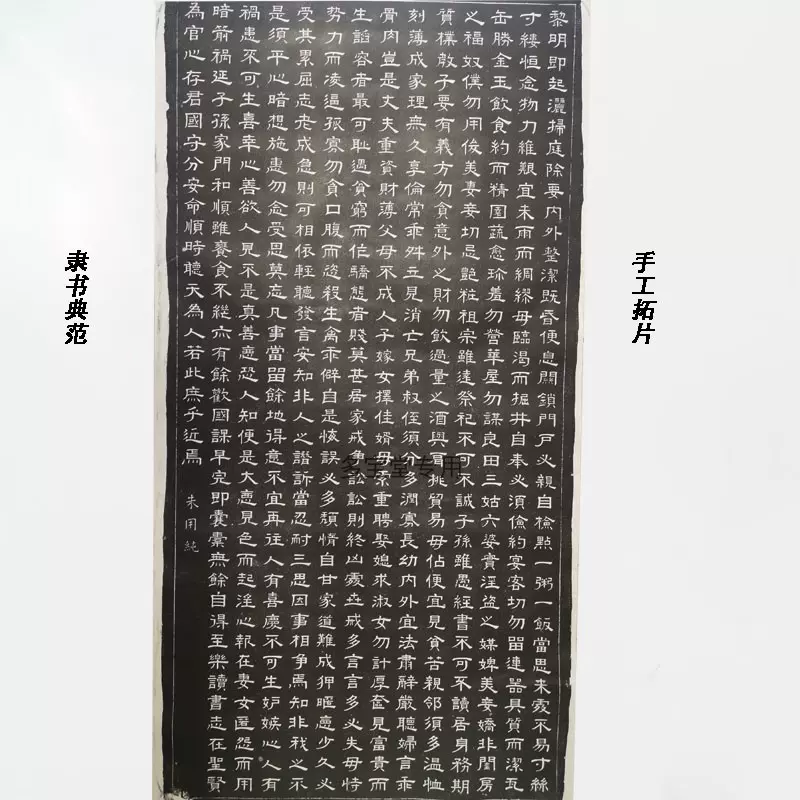 黎明即起灑掃庭除要內外整潔既昏便息關鎖門戶必親自檢點一粥一飯當思來處不易寸絲
寸縷恒念物力維艱宜未雨而綢繆毋臨渴而掘井自奉必須儉約宴客切勿留連器具質而潔瓦
缶勝金玉飲食約而精園蔬愈珍羞勿營華屋勿謀良田三姑六婆實淫盜之媒婢美妾嬌非閨房
之福奴僕勿用俊美妻妾切忌艷粧祖宗雖遠祭祀不可不誠子孫雖愚經書不可不讀居身務期
質樸教子要有義方勿貪意外之財勿飲過量之酒與肩挑貿易毋佔便宜見貧苦親鄰須多溫恤
刻薄成家理無久享倫常乖舛立見消亡兄弟叔侄須分多潤寡長幼內外宜法肅辭嚴聽婦言乖
骨肉豈是丈夫重資財薄父母不成人子嫁女擇佳婿毋索重聘娶媳求淑女勿計厚奩見富貴而
生諂容者最可恥遇貧窮而作驕態者賤莫甚居家戒爭訟訟則終凶處世戒多言言多必失毋恃
勢力而凌逼孤寡勿貪口腹而恣殺生禽乖僻自是悔誤必多頹惰自甘家道難成狎暱惡少久必
受其累屈志老成急則可相依輕聽發言安知非人之譖訴當忍耐三思因事相爭焉知非我之不
是須平心暗想施惠勿念受恩莫忘凡事當留餘地得意不宜再往人有喜慶不可生妒嫉心人有
禍患不可生喜幸心善欲人見不是真善惡恐人知便是大惡見色而起淫心報在妻女匿怨而用
暗箭禍延子孫家門和順雖饔食不繼亦有餘歡國課早完即囊橐無餘自得至樂讀書志在聖賢
為官心存君國守分安命順時聽天為人若此庶乎近焉
朱用純
手工拓片
隶书典范
多宝堂专用